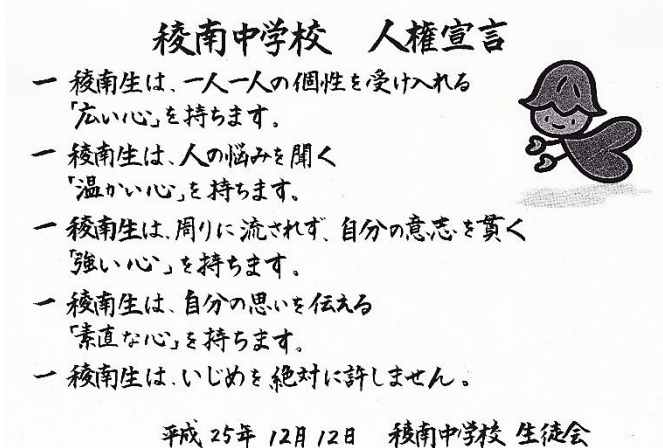 稜南中学校　人権宣言
一 稜南生は、一人一人の個性を受け入れる
「広い心」を持ちます。
一 稜南生は、人の悩みを聞く
「温かい心」を持ちます。
一 稜南生は、周りに流されず、自分の意志を貫く
「強い心」を持ちます。
一 稜南生は、自分の思いを伝える
「素直な心」を持ちます。
一 稜南生は、いじめを絶対に許しません。
平成25年12月12日　稜南中学校 生徒会